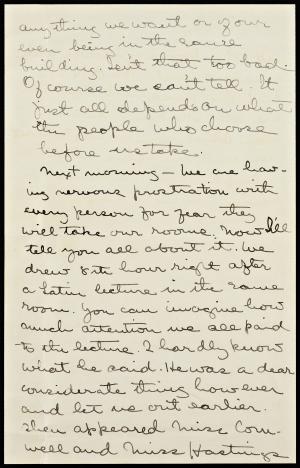 anything we want or of our
even being in the same
building. Isn't that too bad.
Of course we can't tell. It
just all depends on what
the people who choose
before us take.
Next morning – We are hav-
ing nervous prostration with
every person for fear they
will take our rooms. Now I'll
tell you all about it. We
drew 8th hour right after
a Latin lecture in the same
room. You can imagine how
much attention we all paid
to the lecture. I hardly know
what he said. He was a dear
considerate thing however
and let us out earlier.
Then appeared Miss Corn-
well and Miss Hastings